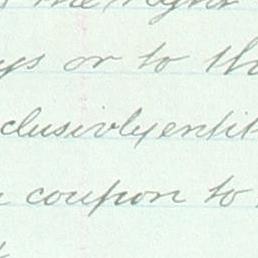 the right
ys or to th
clusivlyentit
coupon to